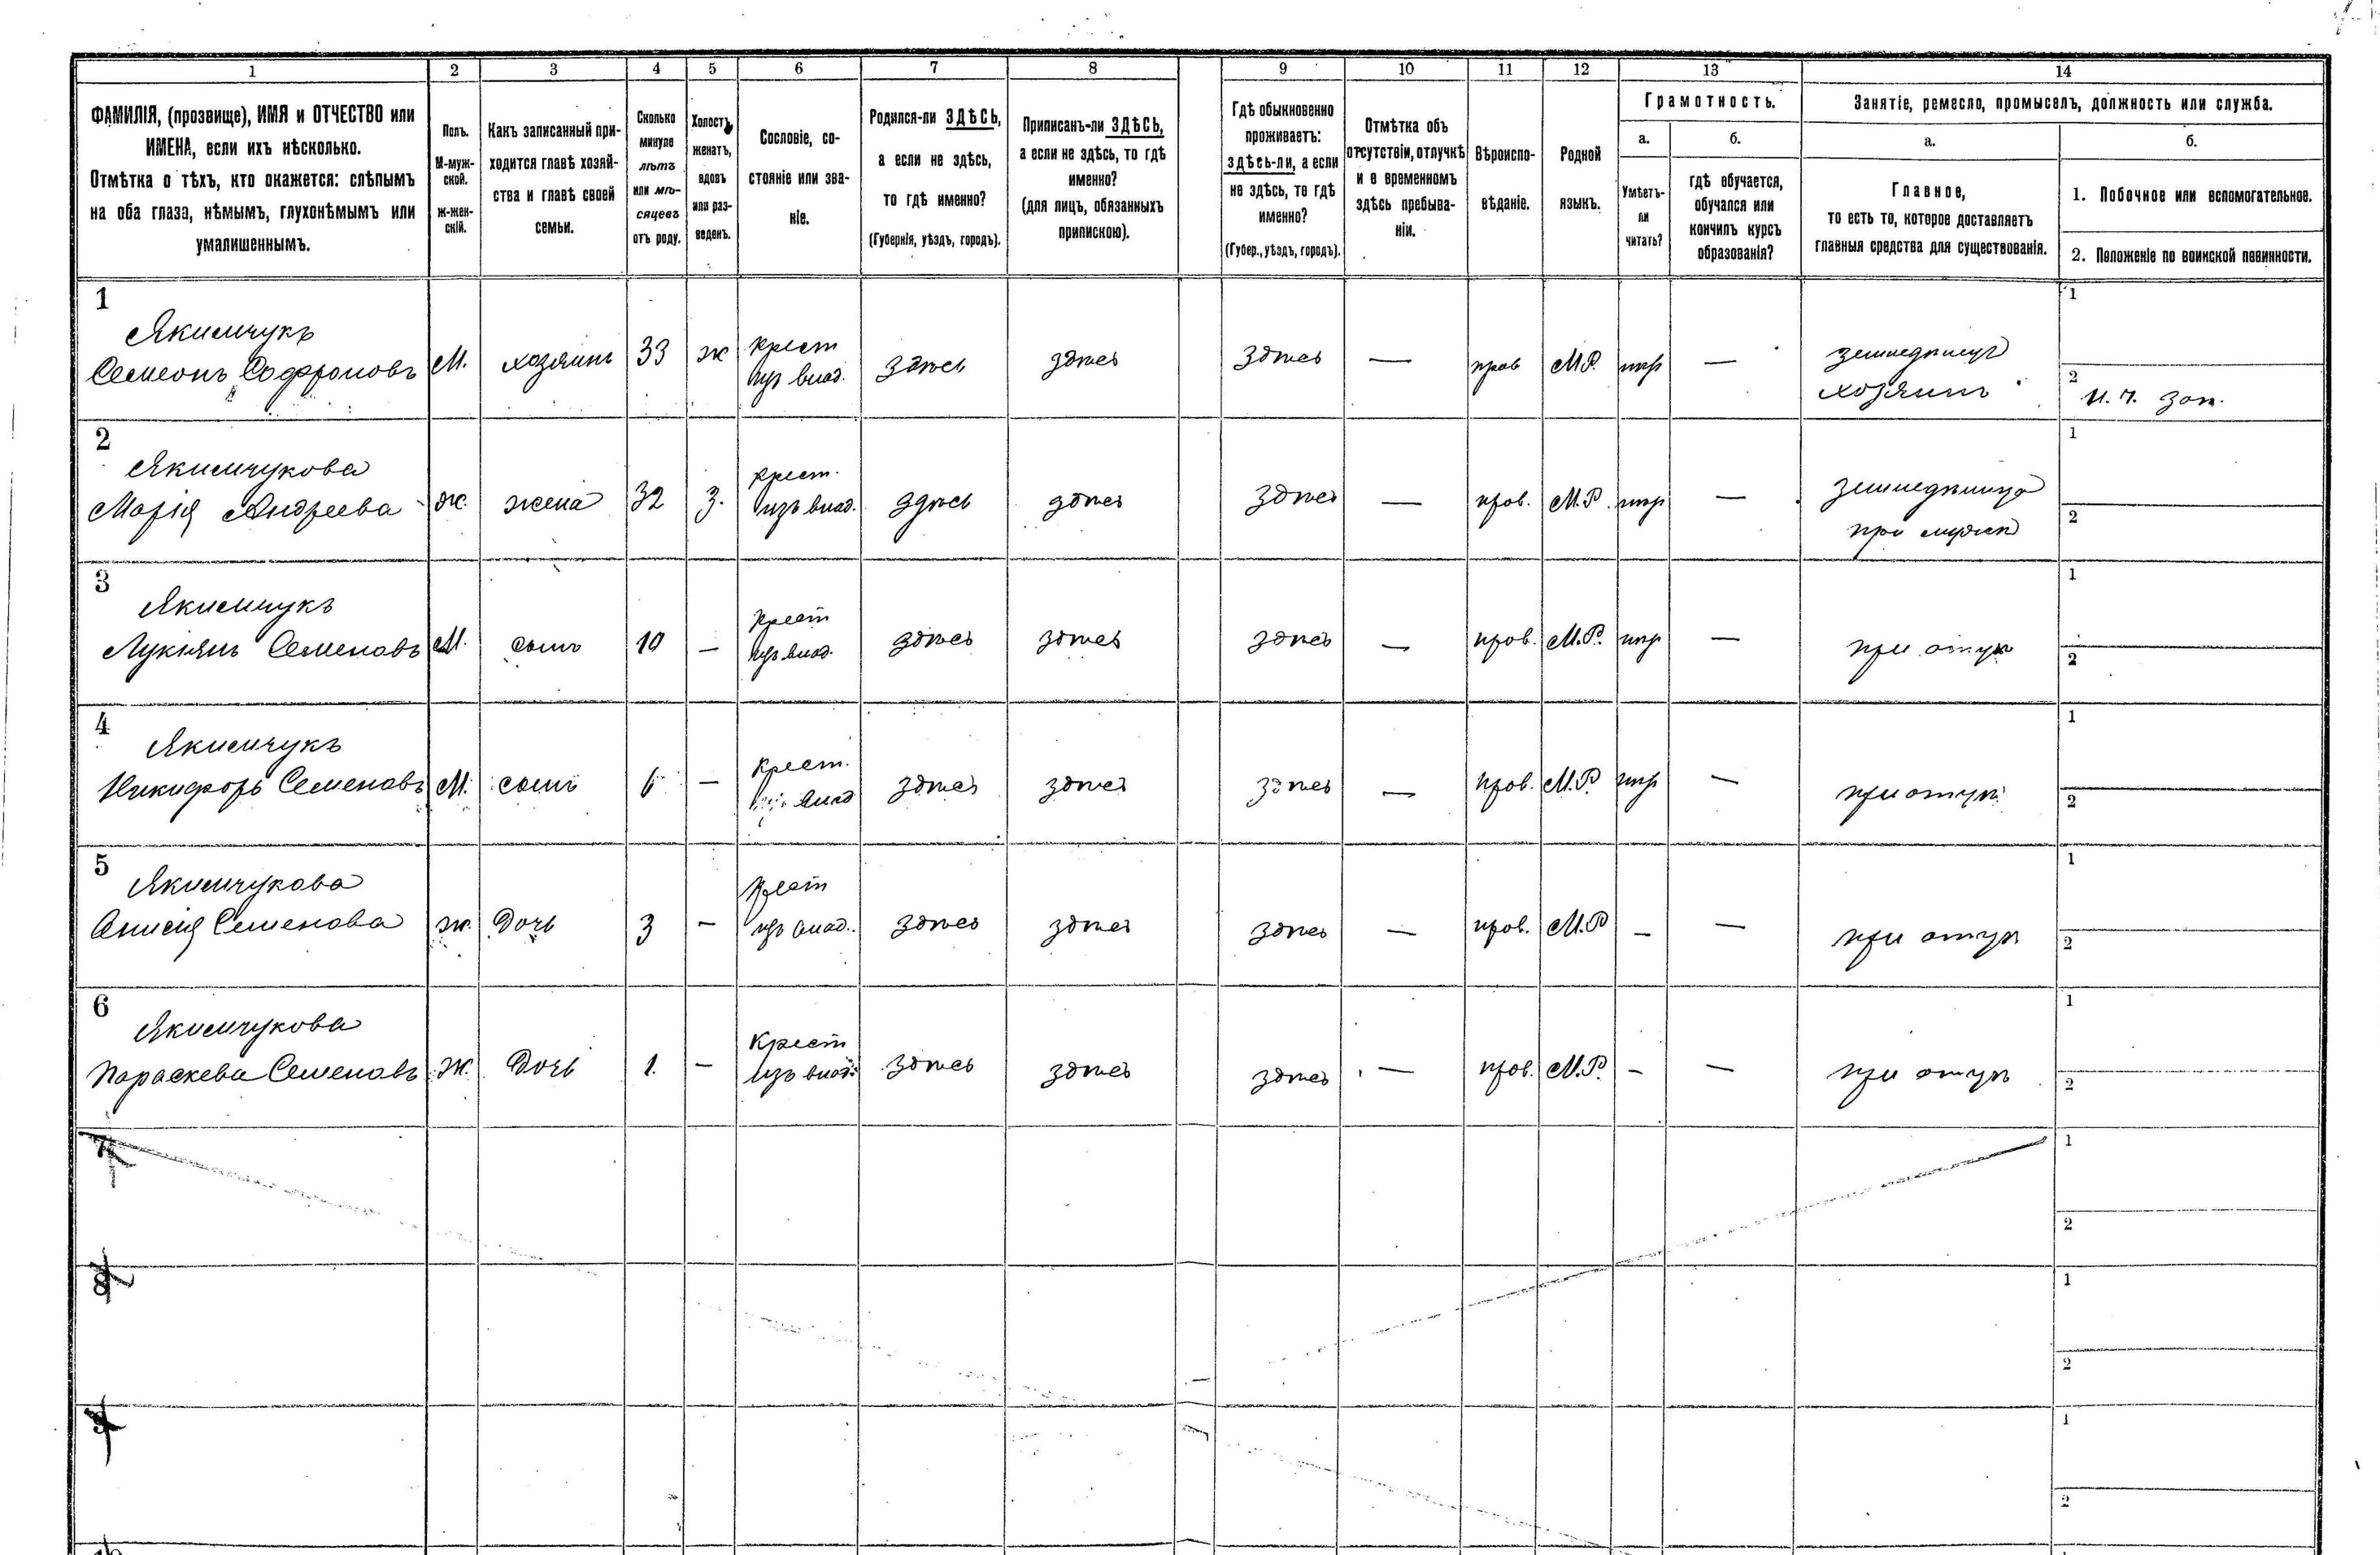 1 2 3 4 5 6 7 8 9 10 11 12 13 14
ФАМИЛІЯ, (прозвище), ИМЯ и ОТЧЕСТВО или
ИМЕНА, если ихъ нѣсколько.
Отмѣтка о тѣхъ, кто окажется: слѣпымъ
на оба глаза, нѣмымъ, глухонѣмымъ или
умалишеннымъ.
Полъ.
М-муж-
ской.
ж-жен-
скій.
Какъ записанный при-
ходится главѣ хозяй-
ства и главѣ своей
семьи.
Сколько
минуло
лѣтъ
или мѣ-
сяцевъ
отъ роду.
Холостъ,
женатъ,
вдовъ
или раз-
веденъ.
Сословіе, со-
стояніе или зва-
ніе.
Родился-ли ЗДѢСЬ,
а если не здѣсь,
то гдѣ именно?
(Губернія, уѣздъ, городъ).
Приписанъ-ли ЗДѢСЬ,
а если не здѣсь, то гдѣ
именно?
(для лицъ, обязанныхъ
припискою).
Гдѣ обыкновенно
проживаетъ:
здѣсь-ли, а если
не здѣсь, то гдѣ
именно?
(Губер., уѣздъ, городъ).
Отмѣтка объ
отсутствіи, отлучкѣ
и о временномъ
здѣсь пребыва-
ніи.
Вѣроиспо-
вѣданіе.
Родной
языкъ.
Грамотность.
а.
Умѣетъ-
ли
читать?
б.
гдѣ обучается,
обучался или
кончилъ курсъ
образованія?
Занятіе, ремесло, промыселъ, должность или служба.
а.
Главное,
то есть то, которое доставляетъ
главныя средства для существованія.
б.
1. Побочное или вспомогательное.
2. Положеніе по воинской повинности.
1
Якимчукъ
Семеонъ Софроновъ М. хозяинъ 33 ж крест
изъ влад. здѣсь здѣсь здѣсь — прав М.Р. —
хозяинъ
1
2
И. Ч. зап.
2
Якимчукова
Марія Андреева ж. жена 32 з. крест.
изъ влад. здѣсь здѣсь здѣсь — прав. М.Р. —
при мужѣ
1
2
3
Якимчукъ
Лукіянъ Семеновъ М. сынъ 10 — крест
изъ влад. здѣсь здѣсь здѣсь — прав. М.Р. — при отцѣ
1
2
4
Якимчукъ
Никифоръ Семеновъ М. сынъ 6 — крест.
влад здѣсь здѣсь здѣсь — прав. М.Р — при отцѣ
1
2
5
Якимчукова
Анисія Семенова ж. Дочь 3 — крест
изъ влад. здѣсь здѣсь здѣсь — прав. М.Р — — при отцѣ
1
2
6
Якимчукова
Параскева Семеновъ ж. Дочь 1. — Крест
изъ влад. здѣсь здѣсь здѣсь — прав. М.Р. — — при отцѣ
1
2
7
1
2
8
1
2
9
1
2